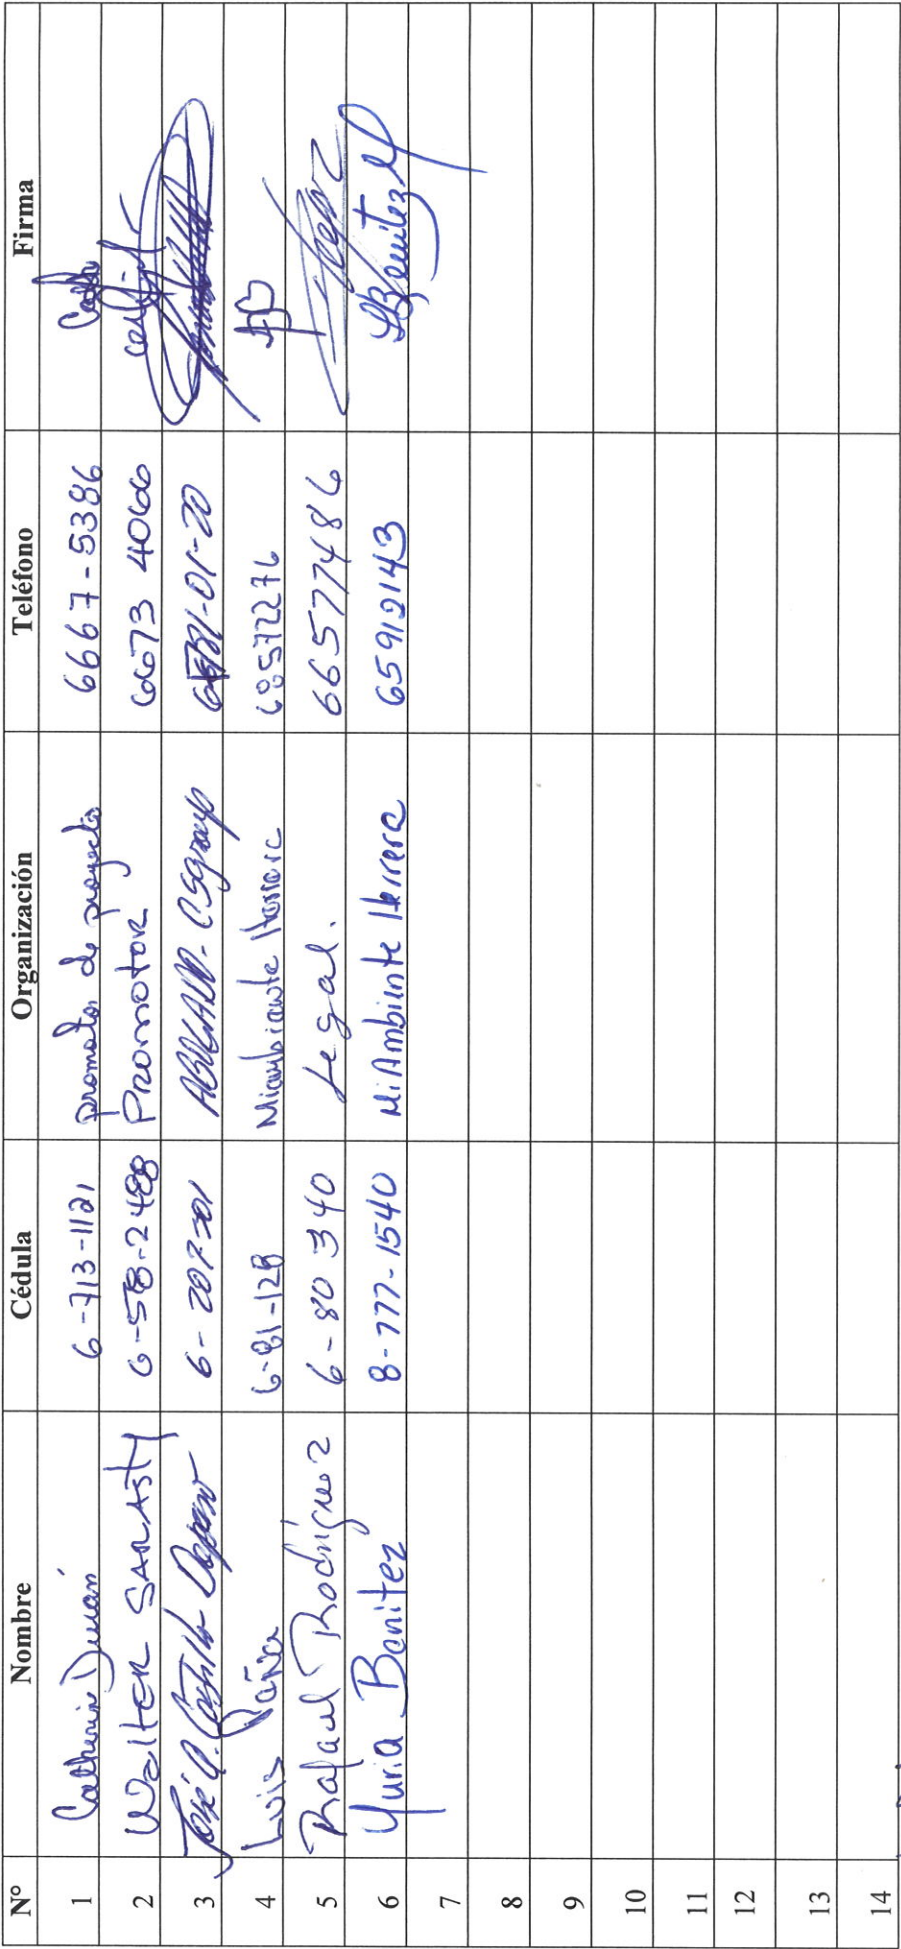 N° Nombre Cédula Organización Teléfono Firma
1 Catherin Durán 6-713-1121 promotor de proyecto 6667-5386
2 Walter SARASTY 6-58-2488 Promotor 6673 4066
3 José A. Castillo 6-207-201 ABOGADO- CSgroup
4 Luis Peña 6-81-128 Miambiente Herrera 68572276
5 Rafael Rodríguez 6-80 340 Legal. 66577486
6 Yuria Benitez 8-777-1540 MiAmbiente Herrera 65912143 YBenitez M
7
8
9
10
11
12
13
14